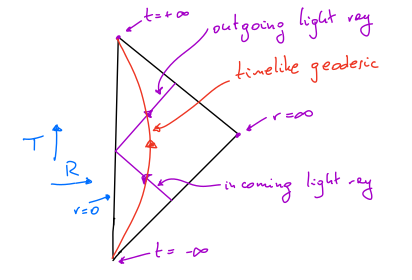 t=+∞
outgoing light ray
timelike geodesic
r=∞
T
R
incoming light ray
r=0
t = -∞